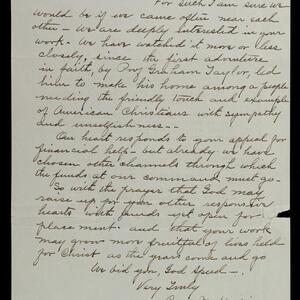 For such I am sure we
would be if we came often near each
other - we are deeply interested in your
work. We have watched it more or less
closely, since the first adventure
in faith, by Prof Graham Taylor, led
him to make his home among a people
needing the friendly touch and example
of American Christians with sympathy
and unselfishness -
Our heart responds to your appeal for
financial help - but already we have
chosen other channels through which
the funds at our command must go.
So with the prayer that God may
raise up for you other responsive
hearts with funds yet open for
placement. and that your work
may grow more fruitful of lives held
for Christ as the years come and go
We bid you, God speed -
Very Truly